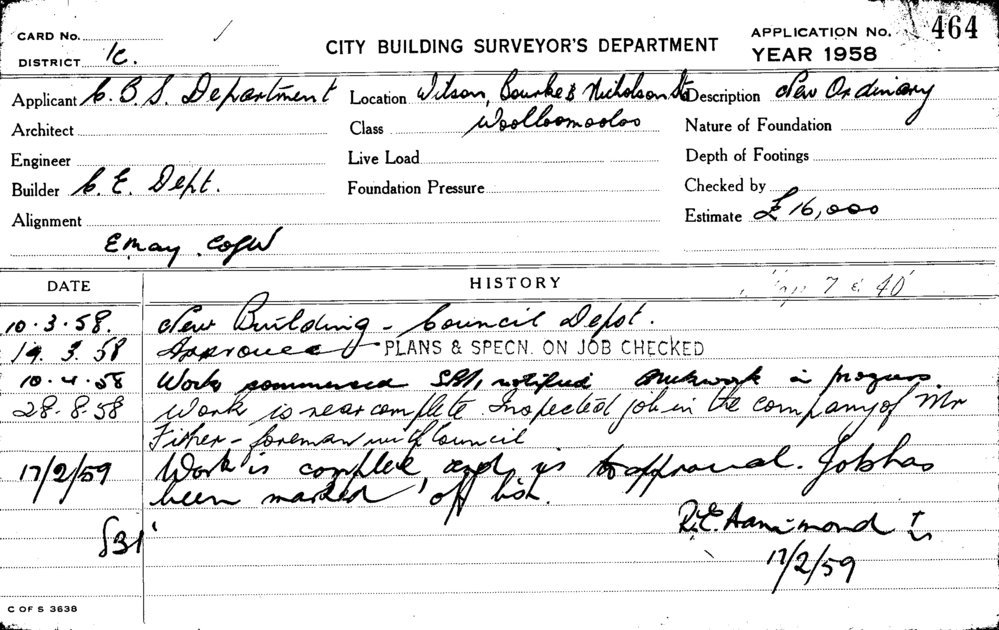 CARD No.
DISTRICT 1C.
CITY BUILDING SURVEYOR'S DEPARTMENT
APPLICATION No. 464
YEAR 1958
Applicant C.B.S. Department Location Wilson, Bourke & Nicholson Sts Description New Ordinary
Architect Class Woolloomooloo Nature of Foundation
Engineer Live Load Depth of Footings
Builder C. E. Dept. Foundation Pressure Checked by
Alignment Estimate £16,000
DATE HISTORY
7 & 40
10.3.58. New Building - Council Depot.
19.3.58 Approved PLANS & SPECN. ON JOB CHECKED
10.4.58 Work commenced notified Brickwork in progress
28.8.58 Work is near complete. Inspected job in the company of Mr
Fisher - foreman with Council
17/2/59 Work is complete and is to approval. Job has
been marked off list.
R.E. Hammond
17/2/59
C OF S 3638